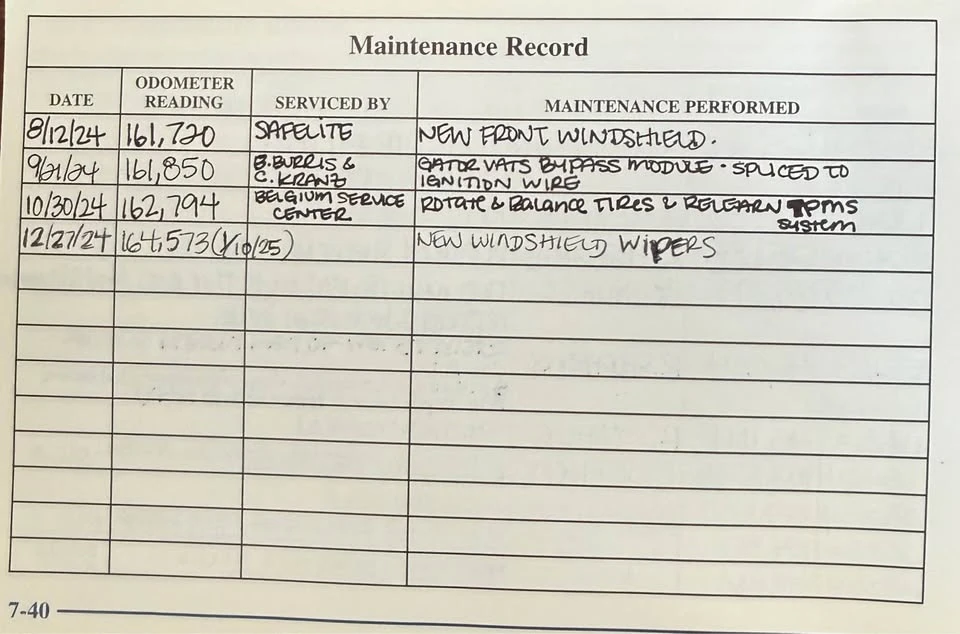 Maintenance Record
DATE ODOMETER READING SERVICED BY MAINTENANCE PERFORMED
8/12/24 161,720 SAFELITE NEW FRONT WINDSHIELD.
9/21/24 161,850 B. BURRIS & C. KRANZ GATOR VATS BYPASS MODULE · SPLICED TO IGNITION WIRE
10/30/24 162,794 BELGIUM SERVICE CENTER ROTATE & BALANCE TIRES & RELEARN TPMS SYSTEM
12/27/24 164,573 (1/10/25) NEW WINDSHIELD WIPERS
7-40